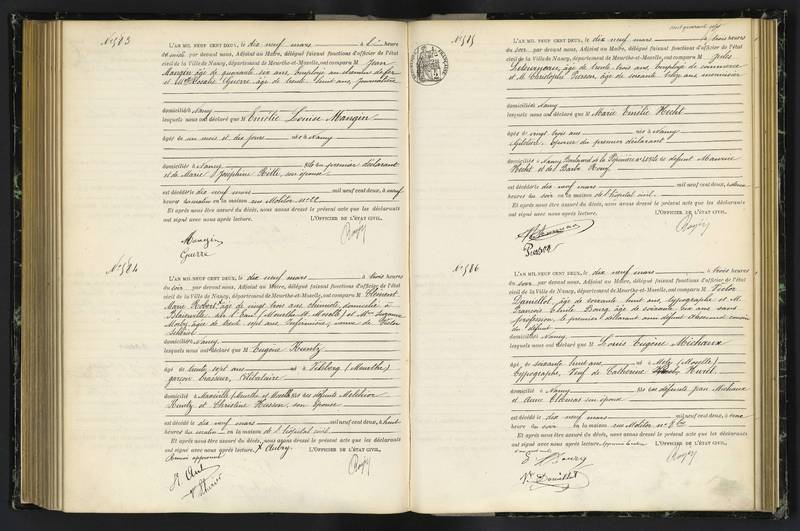 N° 583
L'AN MIL NEUF CENT DEUX, le dix neuf mars à heure
du par devant nous, Adjoint au Maire, délégué faisant fonctions d'officier de l'état
civil de la Ville de Nancy, département de Meurthe-et-Moselle, ont comparu M Jean
Mangin âge de quarante six ans, Employé au chemin de fer
et Guerre âge de trente huit ans, journalière
domiciliés à Nancy
lesquels nous ont déclaré que M Emélie Louise Mangin
âgée de un mois et dix jours née à Nancy
domiciliée à Nancy fille du premier déclarant
et de Marie Joséphine Hille, son épouse
est décédée le dix neuf mars mil neuf cent deux, à neuf
heures du matin en la maison rue Molitor n° 22
Et après nous être assuré du décès, nous avons dressé le présent acte que les déclarants
ont signé avec nous après lecture. L'OFFICIER DE L'ÉTAT CIVIL,
Mangin
Guerre
N° 584
L'AN MIL NEUF CENT DEUX, le dix neuf mars à trois heures
du soir par devant nous, Adjoint au Maire, délégué faisant fonctions d'officier de l'état
civil de la Ville de Nancy, département de Meurthe-et-Moselle, ont comparu M Clément
Marie Aubert, âgé de vingt trois ans, domicilié à
Blainville sur l'Eau (Meurthe et Moselle) et Suzanne
âgée de trente sept ans Infirmière, veuve de Victor
domiciliés à Nancy
lesquels nous ont déclaré que M Eugène Kuntz
âgé de trente sept ans né à (Meurthe)
garçon brasseur, Célibataire
domicilié à Maxéville (Meurthe et Moselle) fils des défunts Melchior
Kuntz et Christine Husson, son épouse
est décédé le dix neuf mars mil neuf cent deux, à huit
heures du matin en la maison de l'hôpital civil
Et après nous être assuré du décès, nous avons dressé le présent acte que les déclarants
ont signé avec nous après lecture. L'OFFICIER DE L'ÉTAT CIVIL,
N° 585
L'AN MIL NEUF CENT DEUX, le dix neuf mars à trois heures
du soir par devant nous, Adjoint au Maire, délégué faisant fonctions d'officier de l'état
civil de la Ville de Nancy, département de Meurthe-et-Moselle, ont comparu M Jules
âgé de trente trois ans, Employé de commerce
et M. Christophe Pierson, âgé de soixante treize ans menuisier
domiciliés à Nancy
lesquels nous ont déclaré que M Marie Emélie Hecht
âgée de vingt trois ans née à Nancy
Giletière, épouse du premier déclarant
domiciliée à Nancy Boulevard de la Pépinière de défunt Maurice
Hecht et de
est décédée le dix neuf mars mil neuf cent deux, à deux
heures du soir en la maison de l'hôpital civil
Et après nous être assuré du décès, nous avons dressé le présent acte que les déclarants
ont signé avec nous après lecture. L'OFFICIER DE L'ÉTAT CIVIL,
Pierson
N° 586
L'AN MIL NEUF CENT DEUX, le dix neuf mars à trois heures
du soir par devant nous, Adjoint au Maire, délégué faisant fonctions d'officier de l'état
civil de la Ville de Nancy, département de Meurthe-et-Moselle, ont comparu M Victor
âgé de soixante huit ans, typographe et M.
François Emile Bourg âgé de soixante six ans sans
profession, le premier déclarant ami défunt et le second cousin
du défunt
domiciliés à Nancy
lesquels nous ont déclaré que M Louis Eugène Michaux
âgé de soixante huit ans né à Metz (Moselle)
typographe, Veuf de Catherine
domicilié à Nancy fils des défunts Jean Michaux
et Anne son épouse
est décédé le dix neuf mars mil neuf cent deux, à onze
heures du en la maison rue Molitor n°
Et après nous être assuré du décès, nous avons dressé le présent acte que les déclarants
ont signé avec nous après lecture. L'OFFICIER DE L'ÉTAT CIVIL,